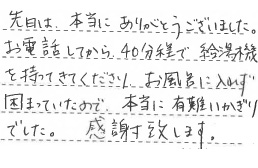 先日は、本当にありがとうございました。
お電話してから、40分程で給湯機
を持ってきてくださり、お風呂に入れず
困まっていたので、本当に有難いかぎり
でした。　感謝致します。